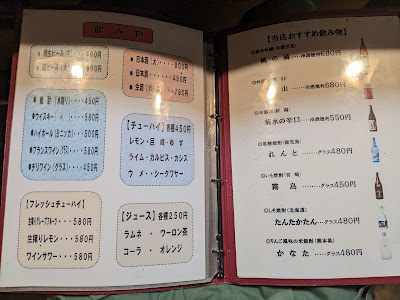 飲み物
・日本酒(大)・・・800円
・日本酒・・・・・450円
・生酒
・焼酎(水割り)・・・450円
・ウイスキー
・ハイボール(Bニッカ)
・フランスワイン
・チリワイン(グラス)・・450円
【チューハイ】各種450円
レモン・巨峰・ゆず
ライム・カルピス・カシス
ウメ・・シークワサー
【フレッシュチューハイ】
生搾りグレープフルーツ・・580円
生搾りレモン・・580円
ワインサワー・・・580円
【ジュース】各種250円
ラムネ・ウーロン茶
コーラ・オレンジ
【当店おすすめ飲み物】
冷酒燗可680円
山・・・冷酒燗可580円
菊水の辛口・・冷酒燗可550円
れんと・・・・・グラス480円
◎いも焼酎(宮崎)
霧島・・・・・グラス450円
◎しそ焼酎(北海道)
たんたかたん・・グラス480円
◎りんご風味の米焼酎(熊本県)
かなた・・・・・グラス480円